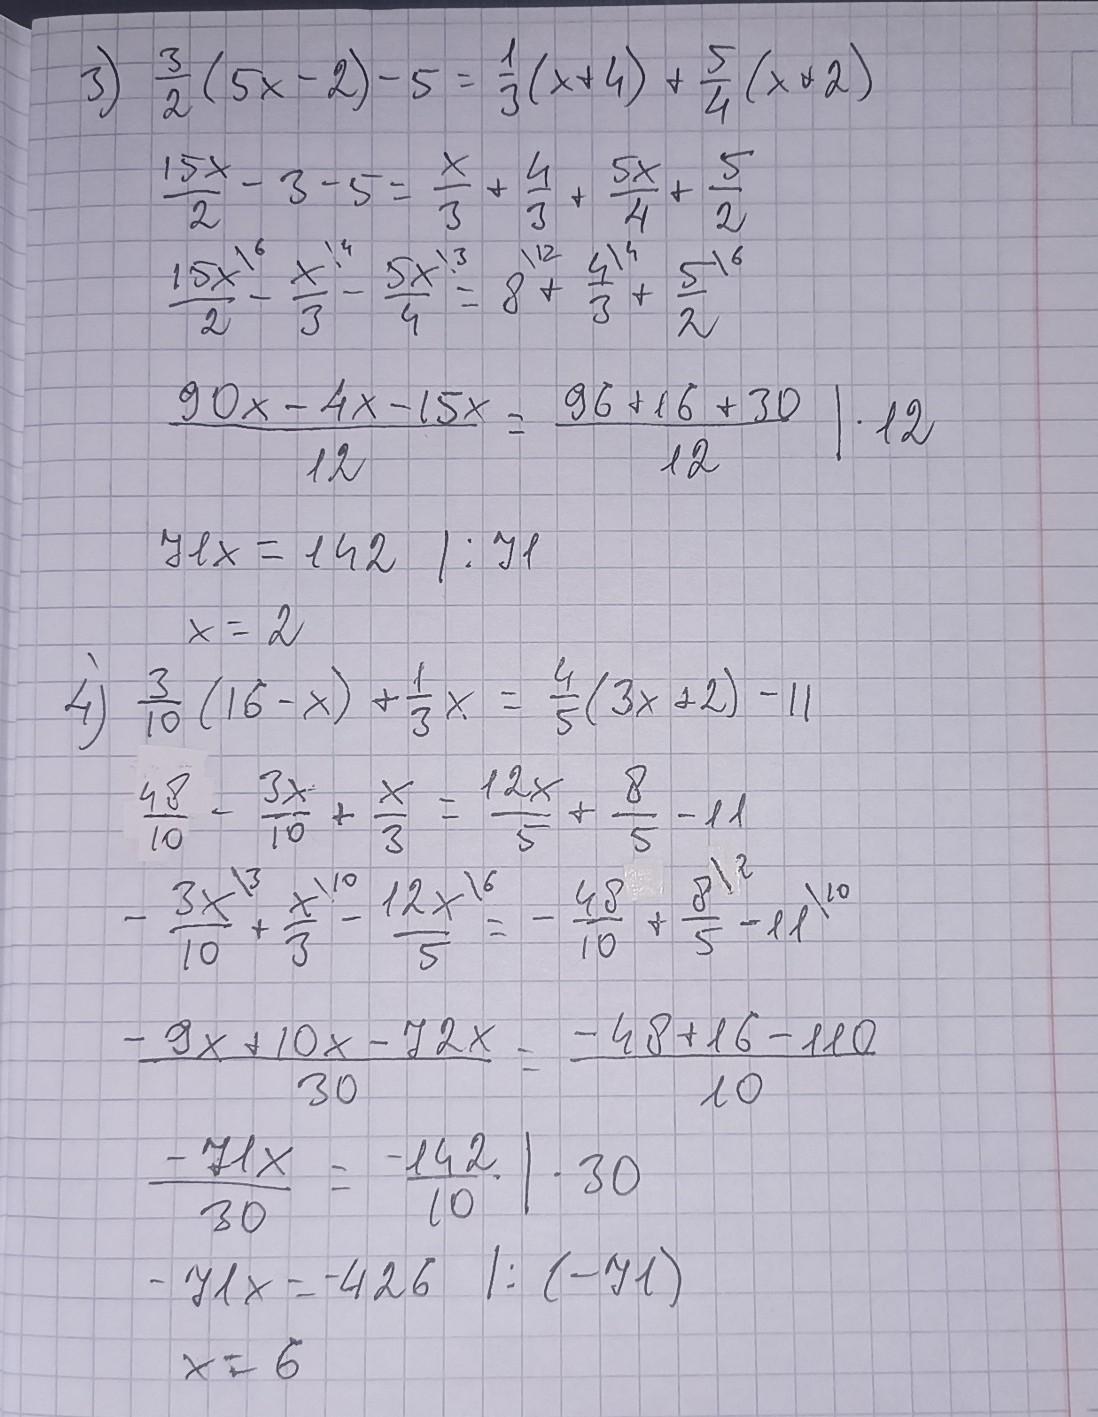 3) 3/2 (5x - 2) - 5 = 1/3 (x + 4) + 5/4 (x + 2)
15x/2 - 3 - 5 = x/3 + 4/3 + 5x/4 + 5/2
15x/2 \6 - x/3 \4 - 5x/4 \3 = 8 \12 + 4/3 \4 + 5/2 \6
90x - 4x - 15x / 12 = 96 + 16 + 30 / 12 | · 12
71x = 142 | : 71
x = 2
4) 3/10 (16 - x) + 1/3 x = 4/5 (3x + 2) - 11
48/10 - 3x/10 + x/3 = 12x/5 + 8/5 - 11
- 3x/10 \3 + x/3 \10 - 12x/5 \6 = - 48/10 + 8/5 \2 - 11 \10
- 9x + 10x - 72x / 30 = - 48 + 16 - 110 / 10
- 71x / 30 = - 142 / 10 | · 30
- 71x = - 426 | : (- 71)
x = 6